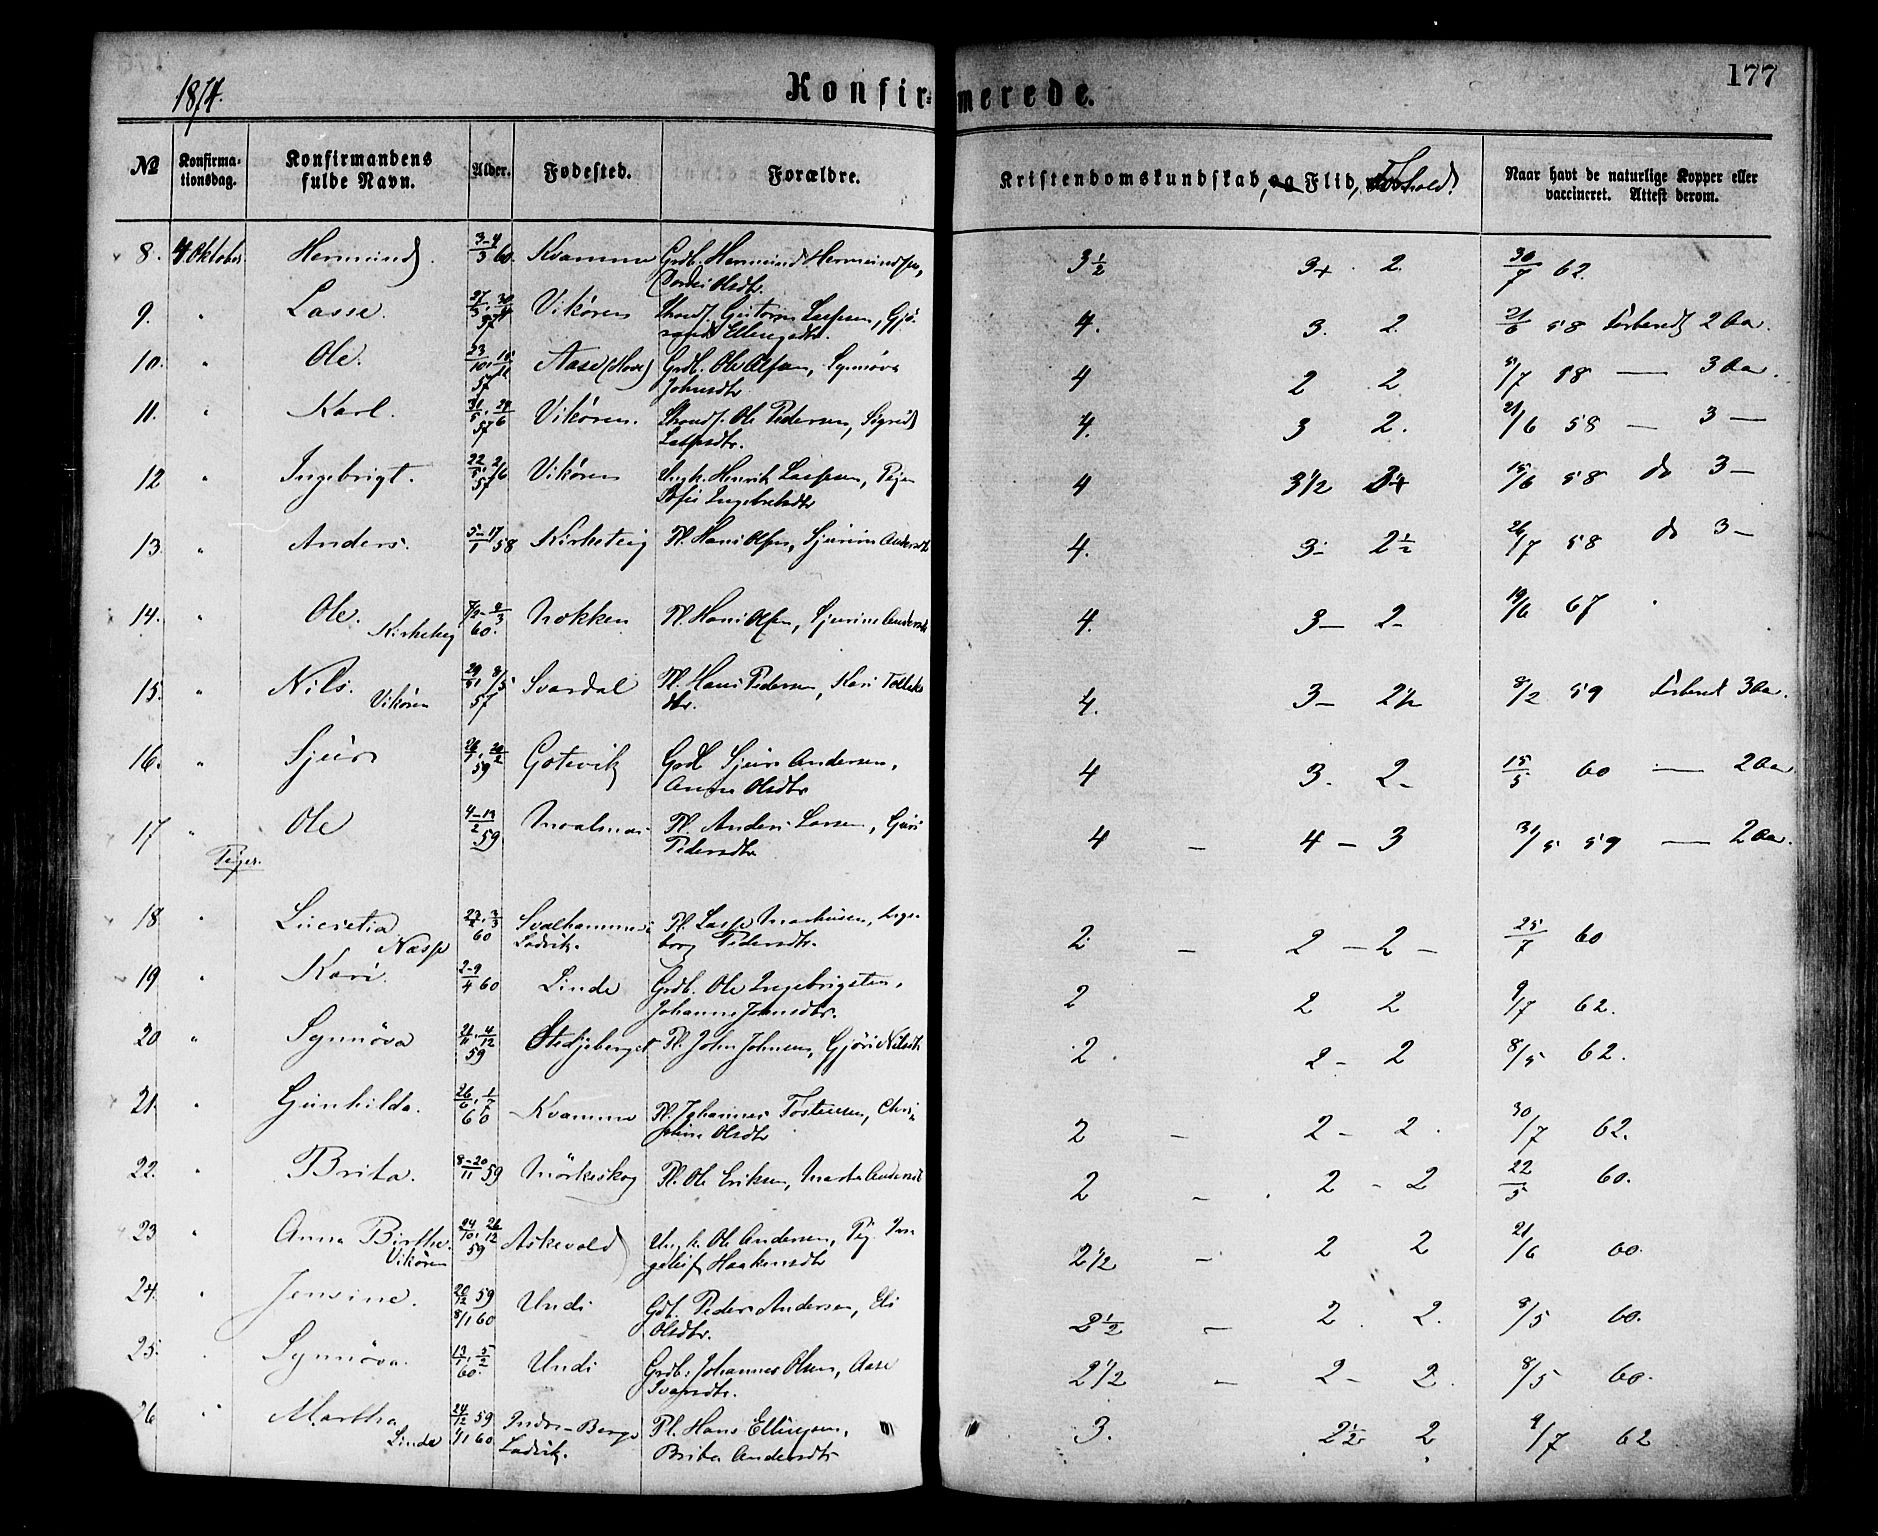 1874.
Konfirmerede.
177
№
Konfirmationsdag.
Konfirmandens fulde Navn.
Alder.
Fødested.
Forældre.
Kristendomskundskab, og Flid, Forhold.
Naar havt de naturlige Kopper eller vaccineret. Attest derom.
8. 4 Oktober Hermund. 3-9/3 60. Kvamme Grdb. Hermund Hermundsen, Olsdtr. 3½ 3+ 2. 30/7 62.
9. " Lasse. 27/3 57 Vikören Strands. Guttorm Lassesen, Gjörond Ellingsdtr. 4. 3. 2. 21/6 58 Forbered 2 Aar.
10. " Ole. 23/10 57 Aase (Hove) Grdb. Ole Olsen, Synnöva Johnsdtr 4 2 2. /7 58 — 3 Aar.
11. " Karl. 31/5 57 Vikören. Strands. Ole Pedersen, Sigrid Lassesdtr. 4. 3 2. 21/6 58 — 3 —
12 " Ingebrigt. 22/5 2/6 57 Vikören Ungk. Henrik Lassesen, Pige Sofie Ingebretsdtr 4 3½ 2+ 15/6 58 do 3 —
13. " Anders. 5-17/1 58 Kirketeig Pl. Hans Olsen, Sjurine Andersdtr 4. 3- 2½ 26/7 58 do 3 —
14. " Ole. Kirketeig 60. Nokken Pl. Hans Olsen, Sjurine Andersdtr 4. 3- 2- 19/6 67
15. " Nils. Vikören 8/5 57 Svardal Pl. Hans Pedersen, Kari Tollaksdtr. 4. 3- 2½ 8/2 59 Forbered 3 Aar.
16. " Sjur 59 Gotevik Grdb Sjur Andersen, Anna Olsdtr 4 3. 2- 15/5 60 — 2 Aar.
17 " Ole 4-13/2 59 Pl. Anders Larsen, Guri Pedersdtr 4 - 4 - 3 31/5 59 — 2 Aar.
Piger.
18 " Lucretia Næsse 27/2 3/3 60 Svalhammer Ladvik. Pl. Lasse Markusen, Ingeborg Pedersdtr. 2. - 2 - 2 - 25/7 60
19 " Kari. 2-9/4 60 Linde Grdb. Ole Ingebrigtsen, Johanne Johnsdtr. 2 2 2 9/7 62.
20 " Synnöva 21/11 4/12 59 Stedjeberget Pl. John Johnsen, Gjöri Nilsdtr 2. 2- 2 8/5 62.
21. " Gunhilda. 26/6 1/7 60 Kvamme Pl. Johannes Tostensen, Christine Olsdtr 2 - 2- 2. 30/7 62.
22. " Brita. 8-20/11 59 Mörkeskog Pl. Ole Eriksen, Marta Andersdtr 2 - 2 - 2 22/5 60.
23 " Anna Birthe. Vikören 24/10 26/12 59 Askevold Ungk. Ole Andersen, Pig. Ingeleif Haakensdtr 2½ - 2 2 21/6 60.
24. " Jensine. 20/12 59 8/1 60 Undi Gdb. Peder Andersen, Eli Olsdtr. 2½ - 2. 2. 8/5 60.
25. " Synnöva. 13/1 5/2 60. Undi Grdb. Johannes Olsen, Aase Ivarsdtr. 2½ - 2- 2. 8/5 60.
26 " Martha Linde 24/12 59 4/1 60 Indre-Berge Ladvik. Pl. Hans Ellingsen, Brita Andersdtr 3. 2½ 2 9/7 62